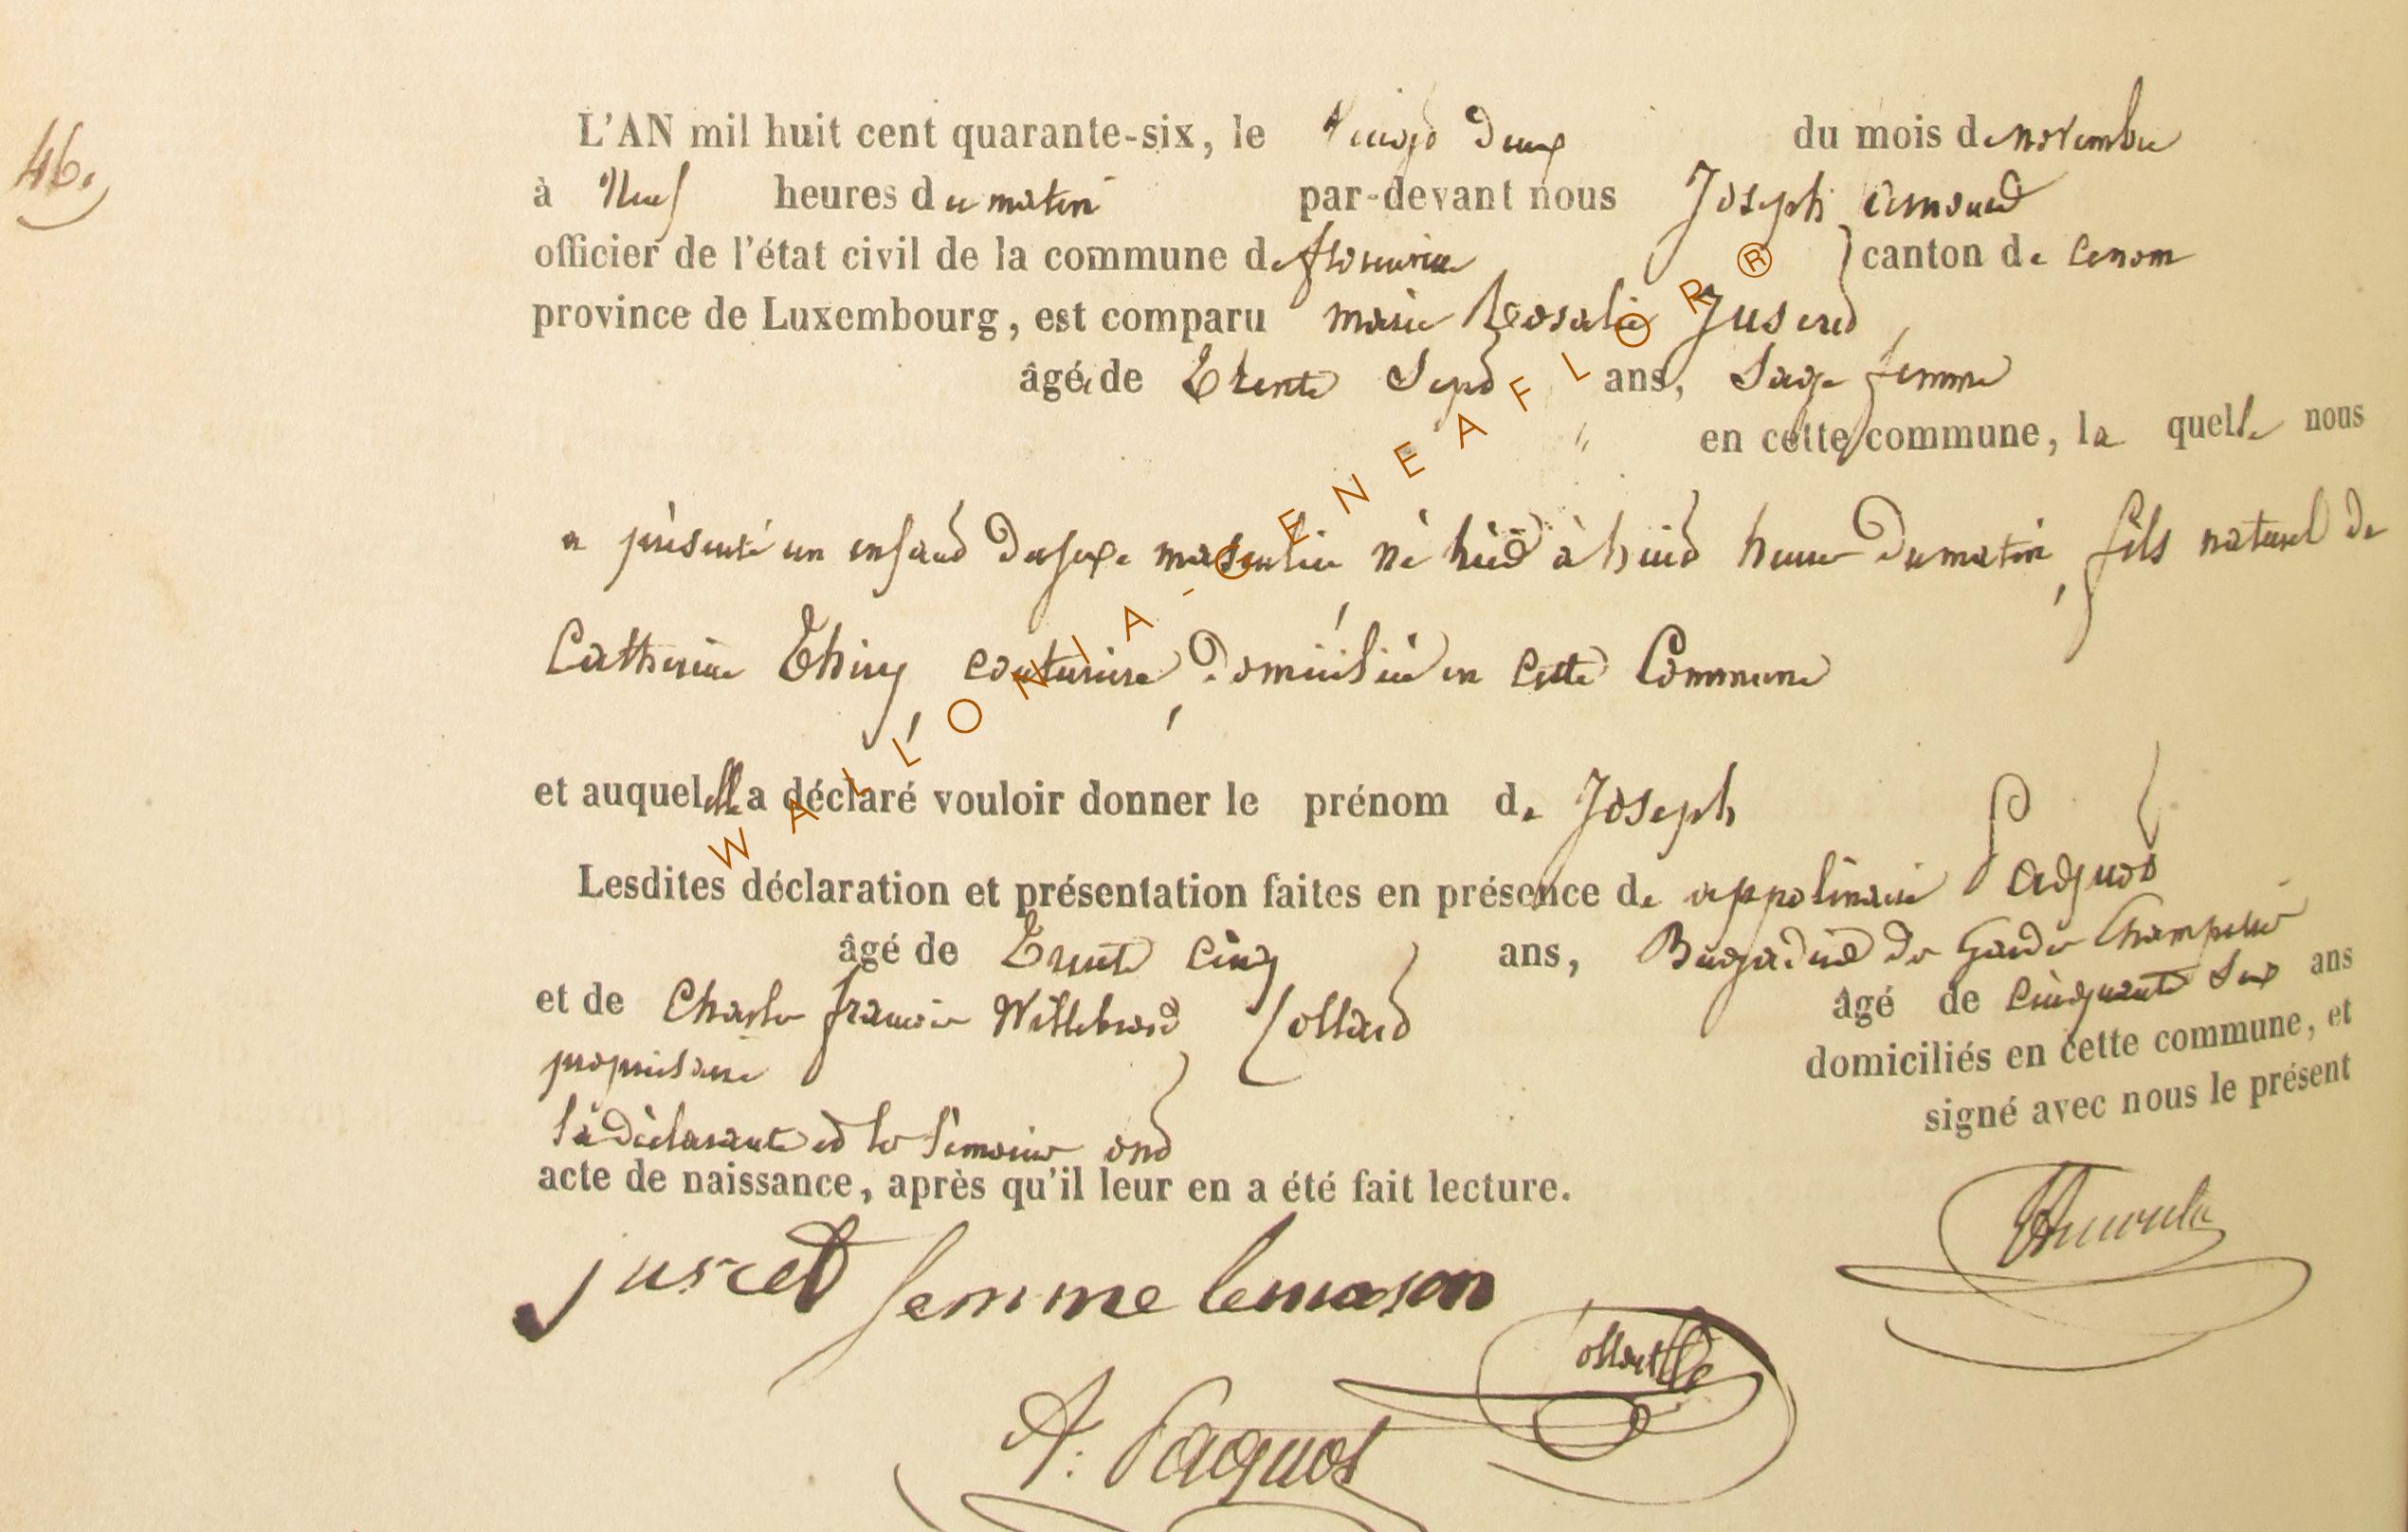 46.
L'AN mil huit cent quarante-six, le Vingt Deux du mois de novembre
à Neuf heures du matin par-devant nous Joseph
officier de l'état civil de la commune de florenville canton de
province de Luxembourg, est comparu marie Rosalie Juseret
âgée de trente Sept ans, Sage femme
" en cette commune, la quelle nous
a présenté un enfant du sexe masculin né hier à huit heures du matin, fils naturel de
Catherine Thiry, couturière, Domiciliée en Cette Commune
et auquel elle a déclaré vouloir donner le prénom de Joseph
Lesdites déclaration et présentation faites en présence de appolinaire Paquot
âgé de Trente Cinq ans, Brigadier des Gardes Champetres
et de Charles françois Willebrord Collard âgé de Cinquante Six ans
propriétaire domiciliés en cette commune, et
la déclarante et les témoins ont signé avec nous le présent
acte de naissance, après qu'il leur en a été fait lecture.
juseret femme lemason
A. Paquot
WALLONIA-GENEAFLOR®